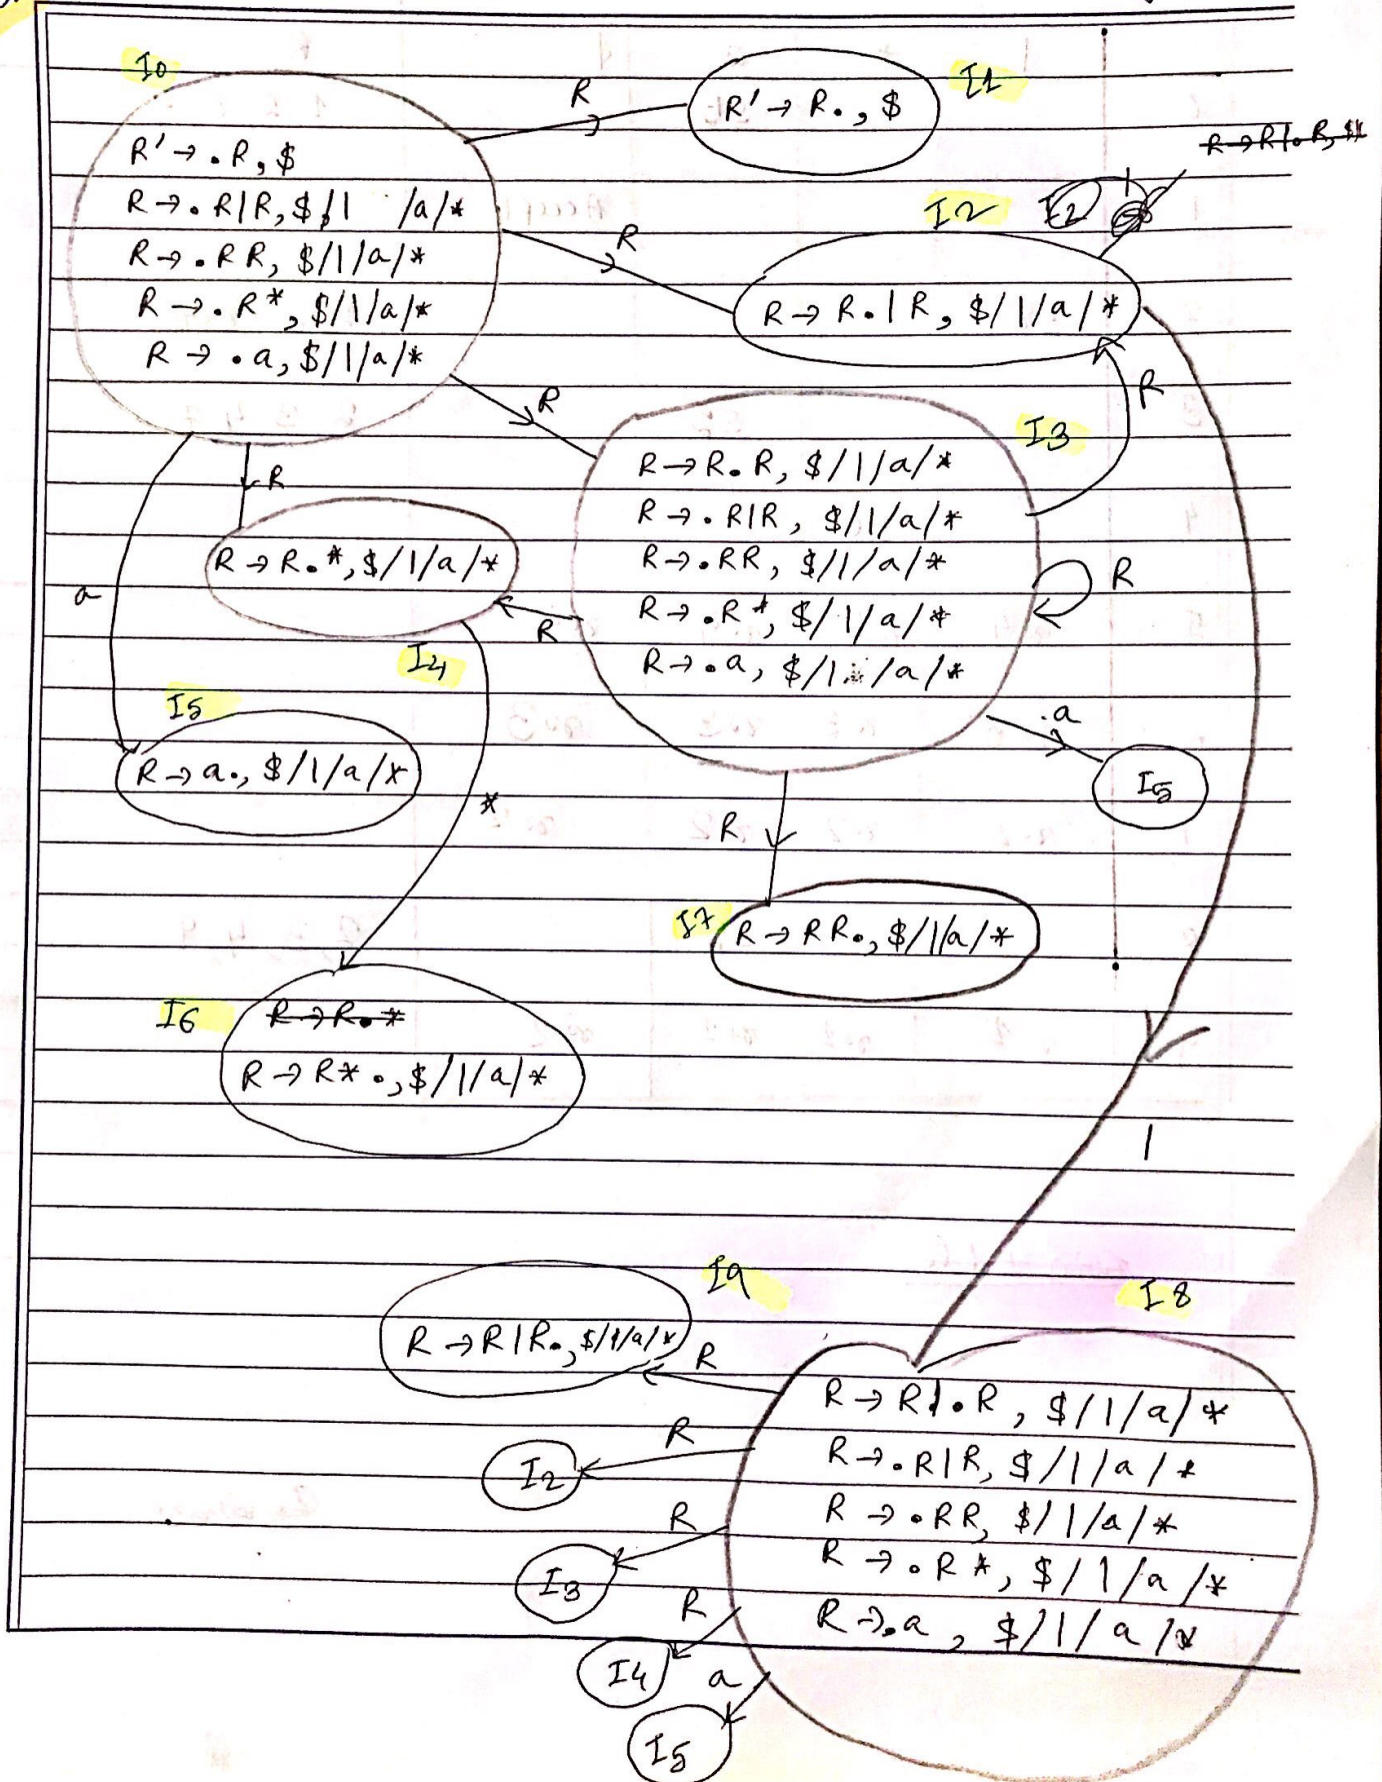 I0
R' → .R, $
R → .R|R, $/| /a/*
R → .RR, $/|/a/*
R → .R*, $/|/a/*
R → .a, $/|/a/*
R
R' → R., $
I1
R
I2
I2
R → R.|R, $/|/a/*
R
R
I3
R → R.R, $/|/a/*
R → .R|R, $/|/a/*
R → .RR, $/|/a/*
R → .R*, $/|/a/*
R → .a, $/|/a/*
R
R
R → R.*, $/|/a/*
R
I4
a
I5
R → a., $/|/a/*
*
.a
I5
R
I7
R → RR., $/|/a/*
I6
R → R.*
R → R*., $/|/a/*
|
I9
R → R|R., $/|/a/*
R
I8
R → R|.R, $/|/a/*
R → .R|R, $/|/a/*
R → .RR, $/|/a/*
R → .R*, $/|/a/*
R → .a, $/|/a/*
R
I2
R
I3
R
I4
a
I5